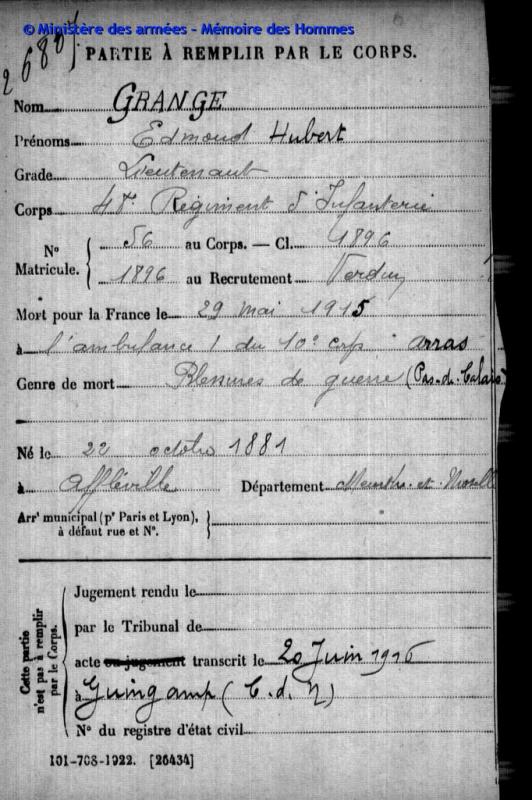 © Ministère des armées - Mémoire des Hommes
PARTIE À REMPLIR PAR LE CORPS.
Nom GRANGE
Prénoms Edmond Hubert
Grade Lieutenant
Corps 47e Régiment d'Infanterie
N° Matricule. { 56 au Corps. — Cl. 1896
1896 au Recrutement Verdun
Mort pour la France le 29 mai 1915
à l'ambulance 1 du 10e corps arras
Genre de mort Blessures de guerre (Pas-de-Calais)
Né le 22 octobre 1881
à Affléville Département Meurthe-et-Moselle
Arrt municipal (pr Paris et Lyon), à défaut rue et N°. }
Cette partie n'est pas à remplir par le Corps.
Jugement rendu le
par le Tribunal de
acte ou jugement transcrit le 20 Juin 1916
à Guingamp (C. d. N)
N° du registre d'état civil
101-708-1922. [26434]